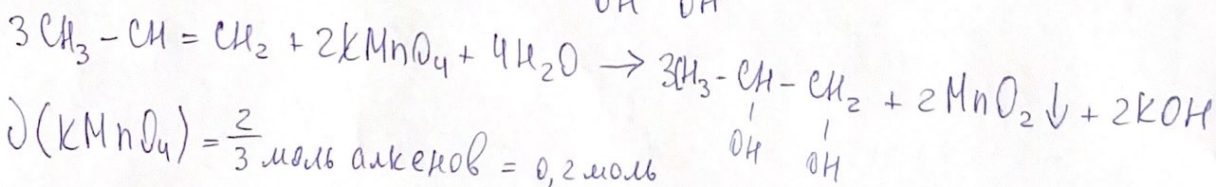 OH OH
3CH₃ – CH = CH₂ + 2KMnO₄ + 4H₂O → 3CH₃ – CH – CH₂ + 2MnO₂↓ + 2KOH
OH OH
ν(KMnO₄) = 2/3 моль алкенов = 0,2 моль